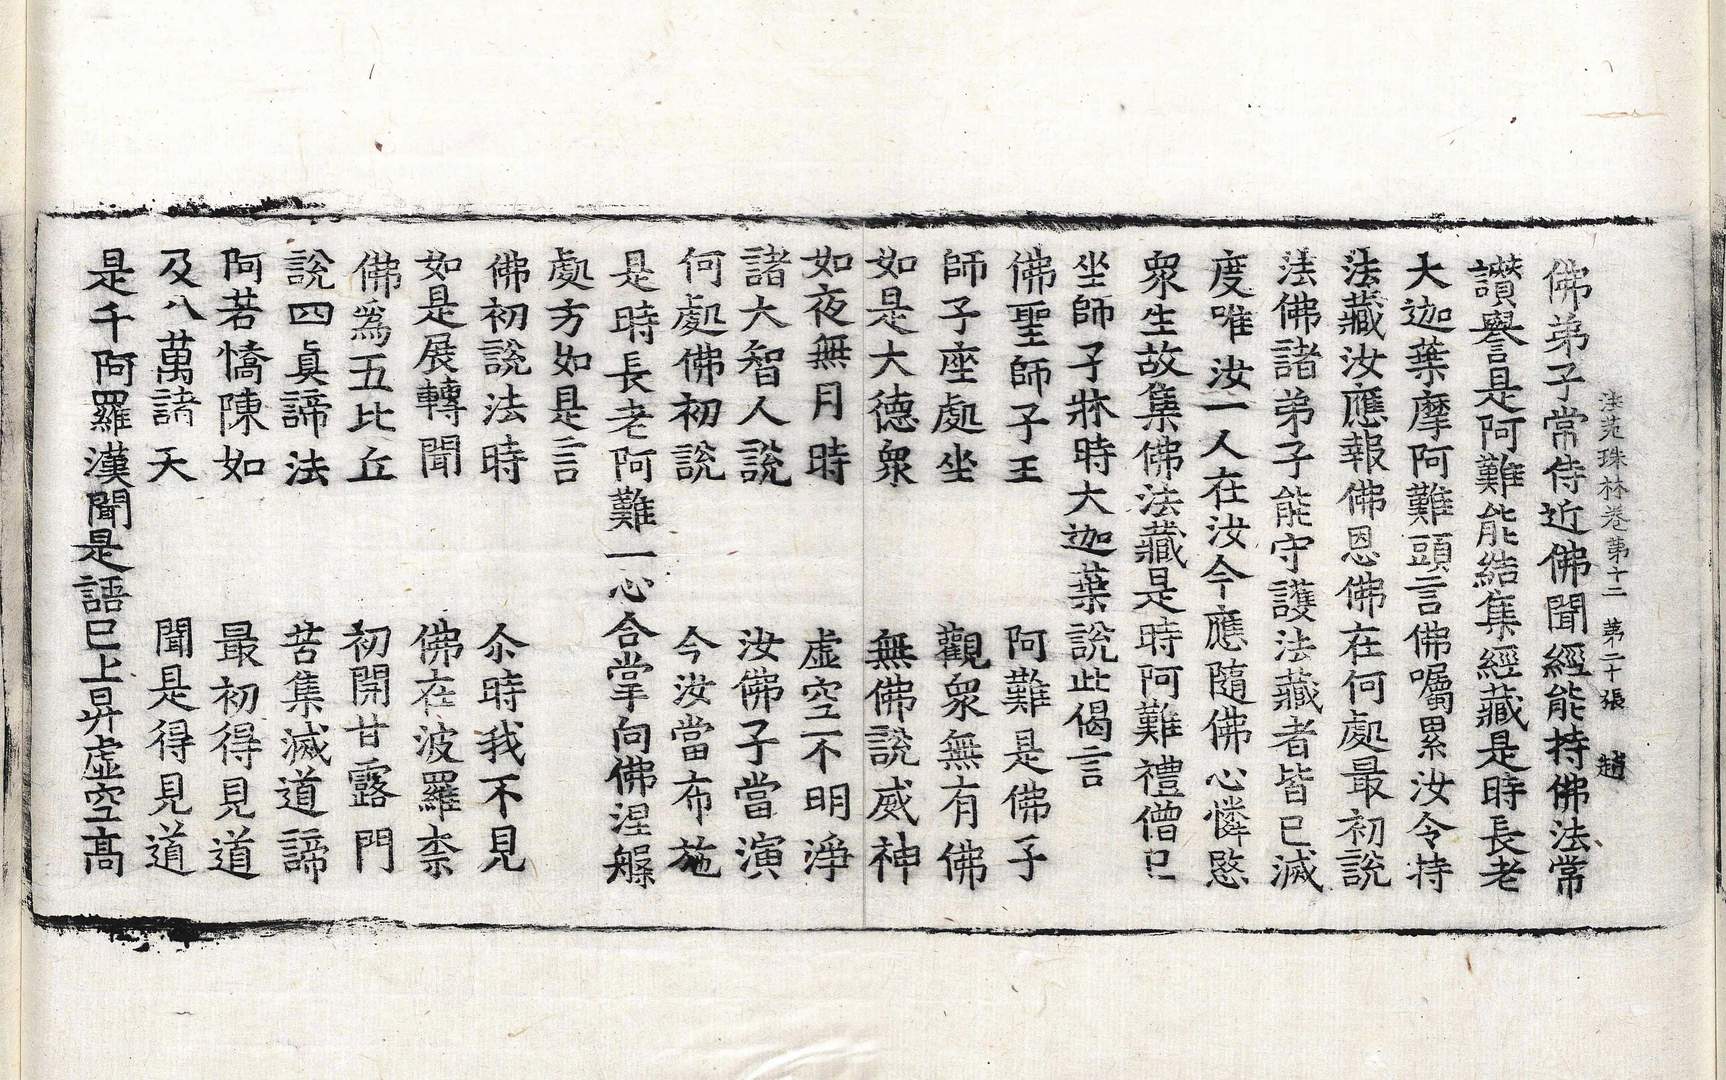 法苑珠林卷第十二 第二十張 趙
佛弟子常侍近佛聞經能持佛法常
讃譽是阿難能結集經藏是時長老
大迦葉摩阿難頭言佛囑累汝令持
法藏汝應報佛恩佛在何處最初說
法佛諸弟子能守護法藏者皆已滅
度唯汝一人在汝今應隨佛心憐愍
衆生故集佛法藏是時阿難禮僧已
坐師子牀時大迦葉說此偈言
佛聖師子王 阿難是佛子
師子座處坐 觀衆無有佛
如是大德衆 無佛說威神
如夜無月時 虛空不明淨
諸大智人說 汝佛子當演
何處佛初說 今汝當布施
是時長老阿難一心合掌向佛涅槃
處方如是言
佛初說法時 尒時我不見
如是展轉聞 佛在波羅柰
佛爲五比丘 初開甘露門
說四眞諦法 苦集滅道諦
阿若憍陳如 最初得見道
及八萬諸天 聞是得見道
是千阿羅漢聞是語已上昇虛空高